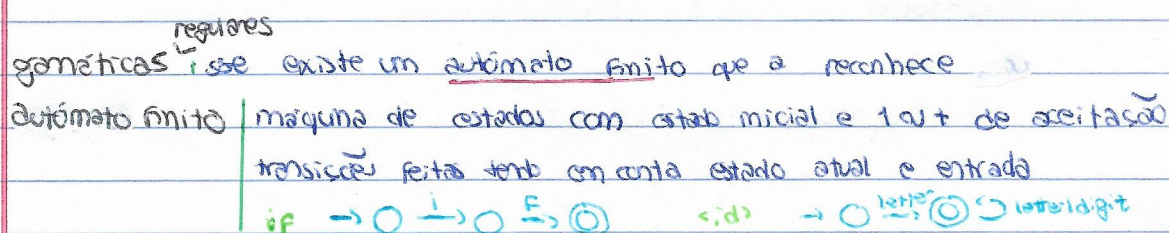 regulares
gramáticas sse existe um autómato finito que a reconhece
autómato finito | máquina de estados com estado inicial e 1 ou + de aceitação
transições feitas tendo em conta estado atual e entrada
if → ○ i→ ○ f→ ◎ <id> → ○ letter→ ◎ letter|digit